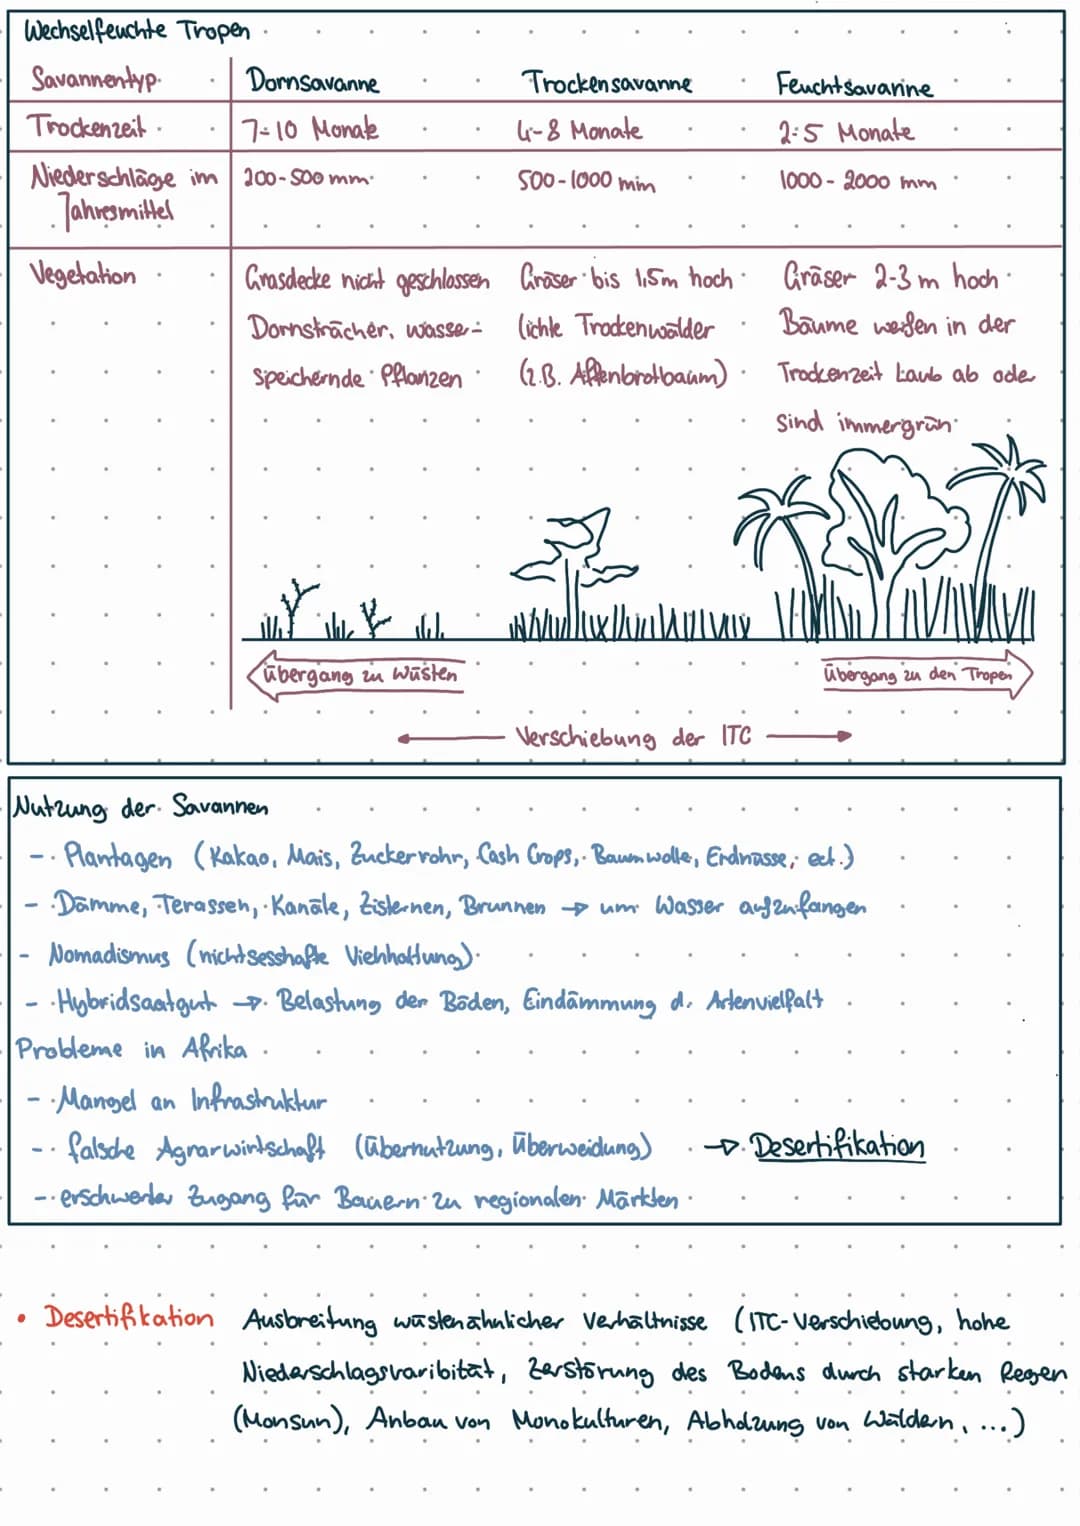 Wechselfeuchte Tropen
Savannentyp Dornsavanne Trockensavanne Feuchtsavanne
Trockenzeit 7-10 Monate 4-8 Monate 2-5 Monate
Niederschläge im 200-500 mm 500-1000 mm 1000-2000 mm
Jahresmittel
Vegetation Grasdecke nicht geschlossen Gräser bis 1,5m hoch Gräser 2-3 m hoch
Dornsträcher, wasser- lichte Trockenwälder Bäume werfen in der
speichernde Pflanzen (z.B. Affenbrotbaum) Trockenzeit Laub ab oder
sind immergrün
Übergang zu Wüsten Übergang zu den Tropen
Verschiebung der ITC
Nutzung der Savannen
- Plantagen (Kakao, Mais, Zuckerrohr, Cash Crops, Baumwolle, Erdnüsse, ect.)
- Dämme, Terassen, Kanäle, Zisternen, Brunnen → um Wasser aufzufangen
- Nomadismus (nichtsesshafte Viehhaltung)
- Hybridsaatgut → Belastung der Böden, Eindämmung d. Artenvielfalt
Probleme in Afrika
- Mangel an Infrastruktur
- falsche Agrarwirtschaft (Übernutzung, Überweidung) → Desertifikation
- erschwerter Zugang für Bauern zu regionalen Märkten
• Desertifikation Ausbreitung wüstenähnlicher Verhältnisse (ITC-Verschiebung, hohe
Niederschlagsvaribität, Zerstörung des Bodens durch starken Regen
(Monsun), Anbau von Monokulturen, Abholzung von Wäldern, ...)